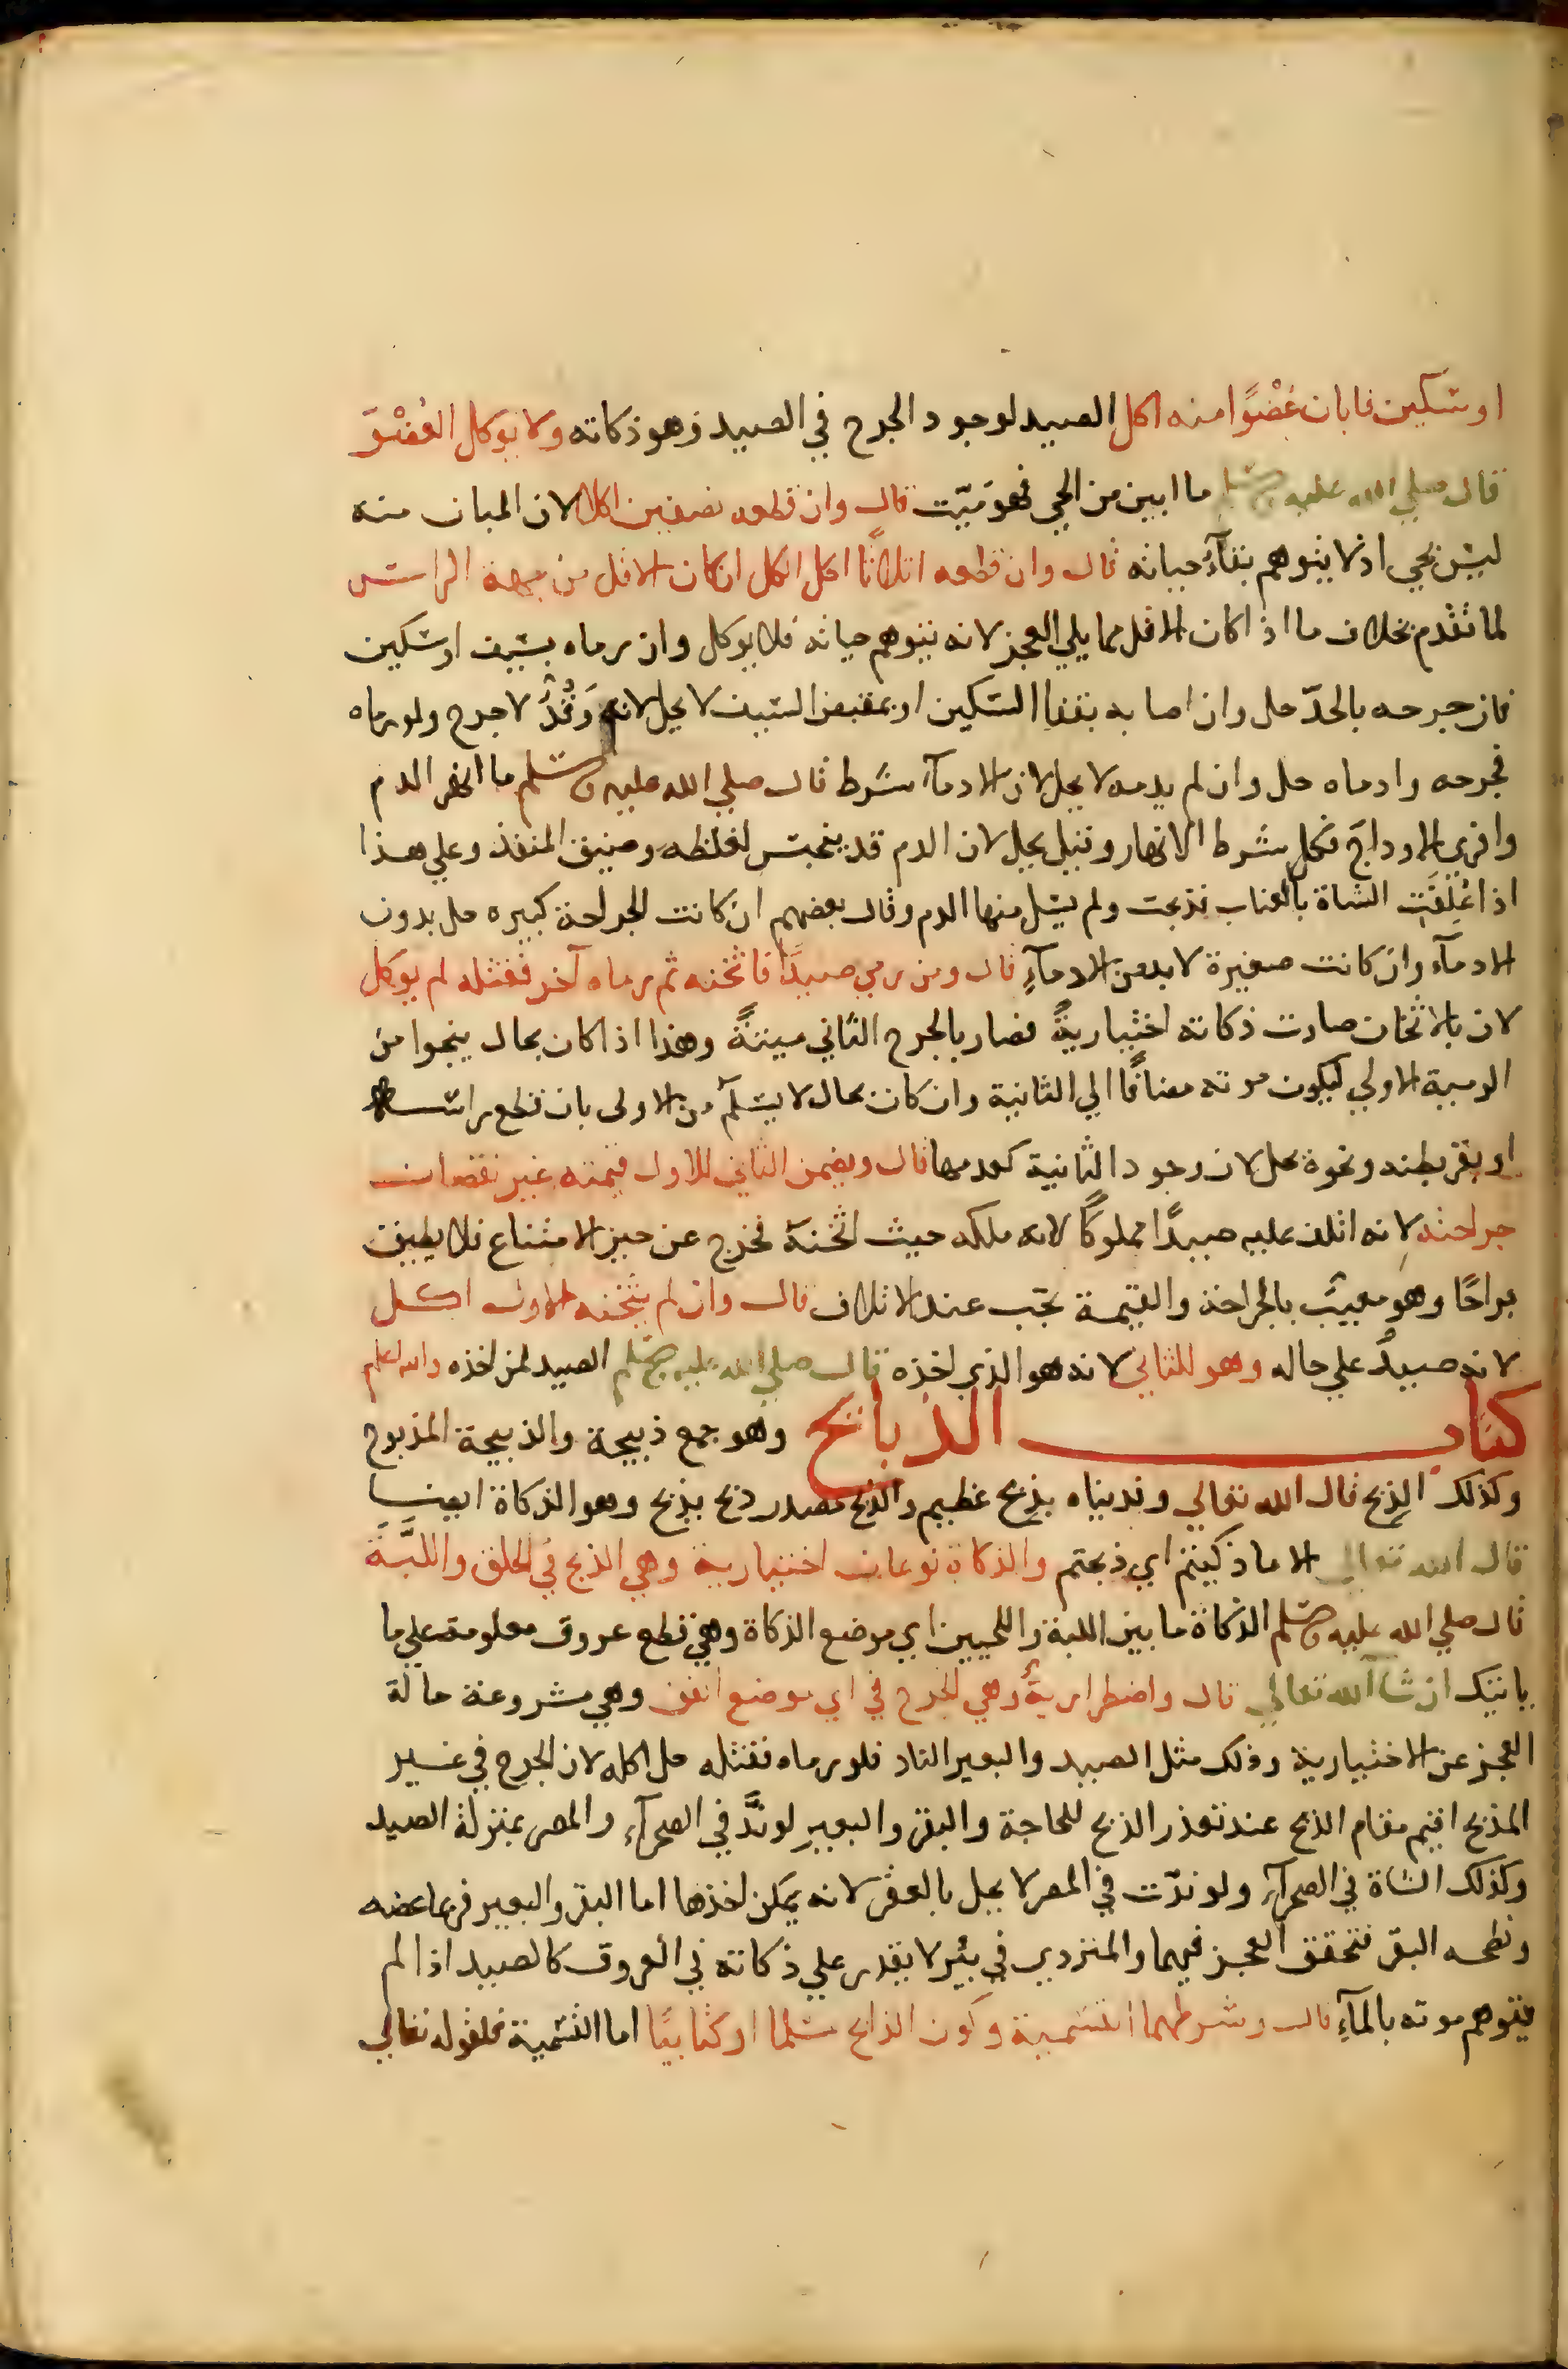 او سكين فابان عُضْوًا منه اكل الصيد لوجود الجرح في الصيد وهو ذكاته ولا يوكل العُضْوَ
قال صلي الله عليه وسلم ما ابين من الحي فهو ميّت قال وان قطعه نصفين اكلا لان المبان منه
ليس بحي اذ لا يتوهم بقآءُ حياته قال وان قطعه اثلاثًا اكل الكل ان كان الاقل من جهة الراس
لما تقدم بخلاف ما اذا كان الاقل مما يلي العجز لانه يتوهم حياته فلا يوكل وان رماه بسيف او سكين
فان جرحه بالحدّ حل وان اصابه بقفا السكين او بمقبض السيف لا يحل لانه وَقْذٌ لا جرح ولو رماه
فجرحه وادماه حل وان لم يدمه لا يحل لان الادمآء شرط قال صلي الله عليه وسلم ما انهر الدم
وافري الاوداجَ فكل شرط الانهار وقيل يحل لان الدم قد ينحبس لغلظه وضيق المنفذ وعلي هذا
اذا عُلِفَتِ الشاة بالعناب فذبحت ولم يسل منها الدم وقال بعضهم ان كانت الجراحة كبيره حل بدون
الادمآء وان كانت صغيرة لا بد من الادمآءِ قال ومن رمي صيدًا فاثخنه ثم رماه آخر فقتله لم يوكل
لان بالاثخان صارت ذكاته اختياريةً فصار بالجرح الثاني ميتةً وهذا اذا كان بحال ينجوا من
الرمية الاولي ليكون موته مضافًا الي الثانية وان كان بحال لا يسلم من الاولى بان قطع راسه
او بقر بطنه ونحوة يحل لان وجود الثانية كعدمها قال ويضمن الثاني للاول قيمته غير نقصان
جراحته لانه اتلف عليه صيدًا مملوكًا لانه ملكه حيث اثخنه فخرج عن حيز الامتناع فلا يطيق
براحًا وهو معيب بالجراحة والقيمة تجب عند الاتلاف قال وان لم يثخنه الاول اكل
لانه صيدٌ علي حاله وهو للثاني لانه هو الذي اخذه قال صلي الله عليه وسلم الصيد لمن اخذه والله اعلم
كتاب الذبايح وهو جمع ذبيحة والذبيحة المذبوح
وكذلك الذِبح قال الله تعالي وفديناه بذِبح عظيم والذَبح مصدر ذبح يذبح وهو الذكاة ايضًا
قال الله تعالى الا ما ذكيتم اي ذبحتم والذكاة نوعان اختيارية وهي الذبح في الحلق واللبَّة
قال صلي الله عليه وسلم الذكاة ما بين اللبة واللحيين اي موضع الذكاة وهي قطع عروق معلومة علي ما
ياتيك ان شآ الله تعالي قال واضطراريةٌ وهي الجرح في اي موضع اتفق وهي مشروعة حالة
العجز عن الاختيارية وذلك مثل الصيد والبعير الناد فلو رماه فقتله حل اكله لان الجرح في غير
المذبح اقيم مقام الذبح عند تعذر الذبح للحاجة والبقر والبعير لو ندَّ في الصحرآء والمصر بمنزلة الصيد
وكذلك الشاة في الصحرآء ولو ندّت في المصر لا يحل بالعقر لانه يمكن اخذها اما البقر والبعير فربما عضه
ونطحه البقر فتحقق العجز فيهما والمتردي في بئير لا يقدر علي ذكاته في العروق كالصيد اذا لم
يتوهم موته بالمآءِ قال وشرطهما التسمية وكون الذابح مسلما او كتابيًا اما التسمية فلقوله تعالي